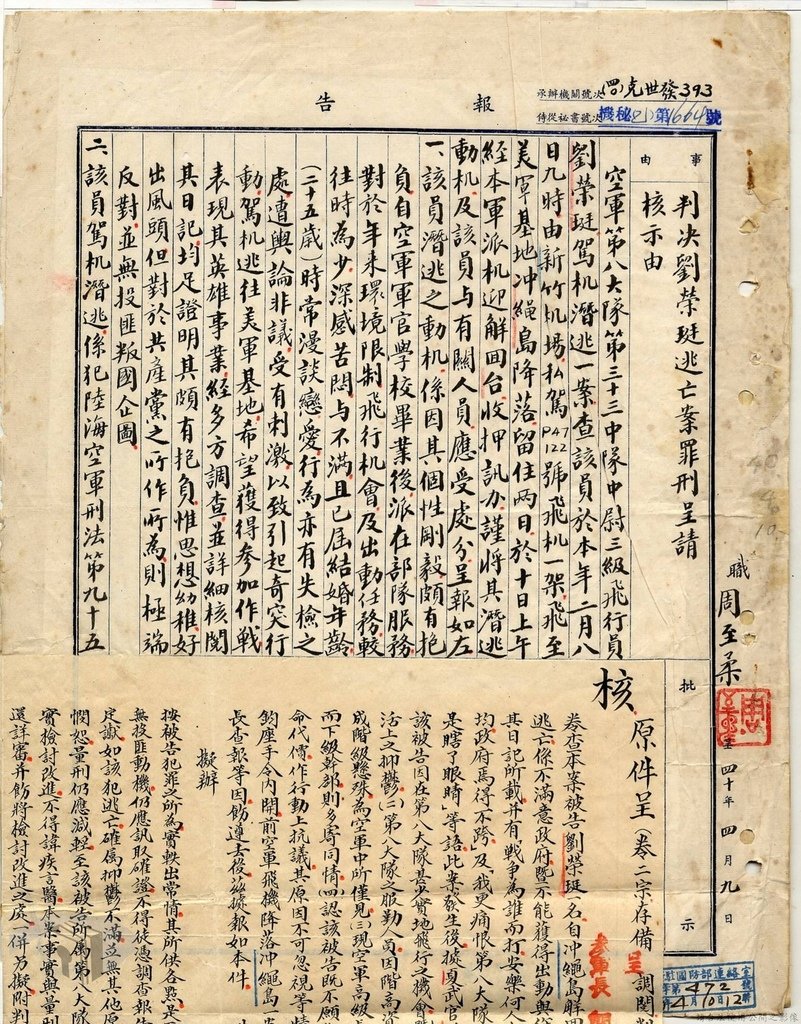 報告
承辦機關號次(四〇)克世發393
侍從祕書號次機秘(乙)第1664號
事由
判決劉榮珽逃亡案罪刑呈請
核示由
空軍第八大隊第三十三中隊中尉三級飛行員
劉榮珽駕机潛逃一案查該員於本年二月八
日九時由新竹机場私駕P47 122號飛机一架飛至
美軍基地冲繩島降落留住兩日於十日上午
經本軍派机迎解回台收押訊办謹將其潛逃
動机及該員与有關人員應受處分呈報如左
一、該員潛逃之動机係因其個性剛毅頗有抱
負自空軍軍官學校畢業後派在部隊服務
對於年來環境限制飛行机會及出動任務較
往時為少深感苦悶与不滿且已屆結婚年齡
(二十五歲)時常漫談戀愛行為亦有失檢之
處遭輿論非議受有刺激以致引起奇突行
動駕机逃往美軍基地希望獲得參加作戰
表現其英雄事業經多方調查並詳細核閱
其日記均足證明其頗有抱負惟思想幼稚好
出風頭但對於共產黨之所作所為則極端
反對並無投匪叛國企圖
二、該員駕机潛逃係犯陸海空軍刑法第九十五
職周至柔
四十年四月九日
批示
核
原件呈(卷二宗存備調閱
叅查本案被告劉榮珽一名自冲繩島解
逃亡係不滿意政府暨不能獲得出動與
其日記所載并有「戰爭為誰而打安樂何人
均政府焉得不跨」及「我更痛恨第八大隊
是瞎了眼睛」等語此案發生後據員武官
該被告因在第八大隊甚少實地飛行之機會
活上之抑鬱(二)第八大隊之服勤人員因階高資
成階級懸殊為空軍中所僅見(三)現空軍高級
而下級幹部則多寄同情(四)認該被告既不願
命代傳作行動上抗議其原因不可忽視等情
鈞座手令內開前空軍飛機降落冲繩島一
長查報等因飭遵去後茲據報如本件
擬辦
按被告犯罪之所為實軼出常情其所供各點是
無投匪動機仍應訊取確證不得徒憑調查報告
定讞如該犯逃亡確屬抑鬱不滿並無其他原
憫恕量刑仍應減輕至該被告所屬第八大隊
實檢討改進不得諱疾忌醫本案事實與量刑
還詳審并飭將檢討改進之處一併另擬附判
國防部連絡室
第472號
4月10日12時